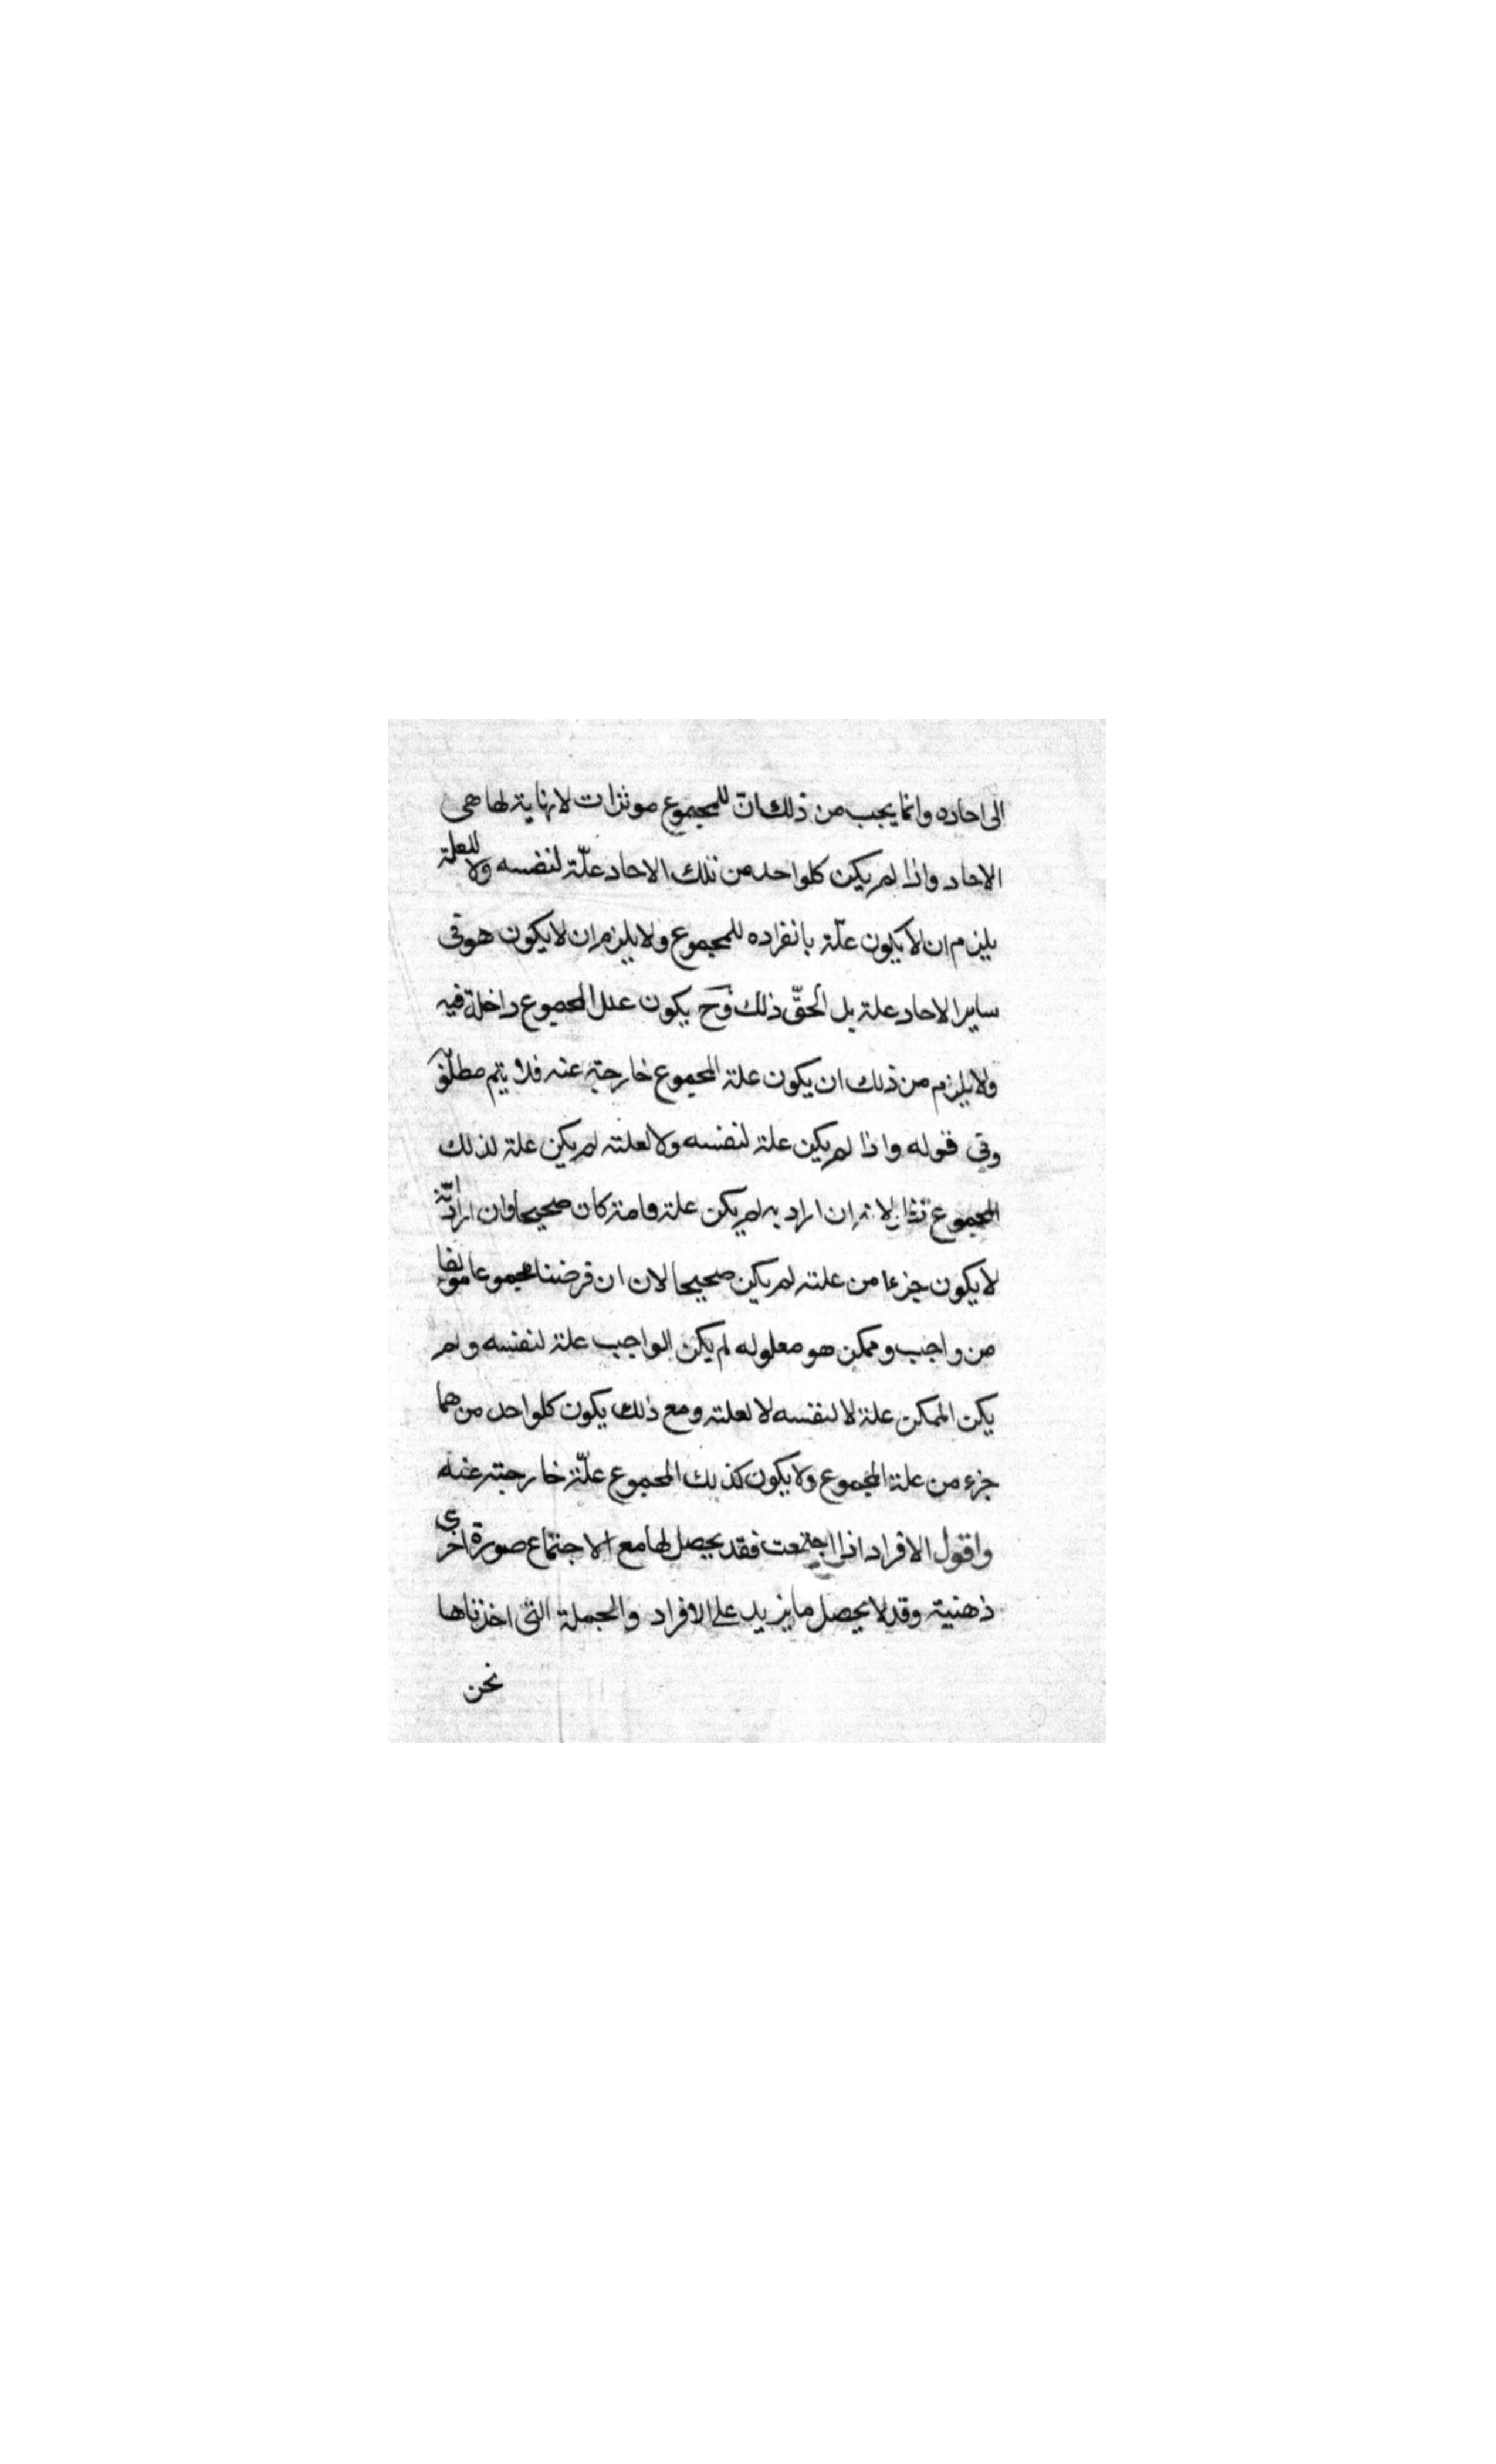 الى احاده وانما يجب من ذلك انّ للمجموع موثرات لا نهاية لها هى
الاحاد واذا لم يكن كلواحد من تلك الاحاد علّة لنفسه ولا للعلة
يلزم ان لا يكون علّة بانفراده للمجموع ولا يلزم ان لا يكون هو فى
ساير الاحاد علة بل الحقّ ذلك وح يكون علل المجموع داخلة فيه
ولا يلزم من ذلك ان يكون علة المجموع خارجة عنه فلا يتم مطلق
وفى قوله واذا لم يكن علة لنفسه ولا لعلته لم يكن علة لذلك
المجموع لانه ان اراد به لم يكن علة تامة كان صحيحا وان اراد انّه
لا يكون جزءا من علته لم يكن صحيحا لان ان فرضنا مجموعا مولفا
من واجب وممكن هو معلوله لم يكن الواجب علة لنفسه ولم
يكن الممكن علة لا لنفسه لا لعلته ومع ذلك يكون كلواحد من هما
جزء من علة المجموع ولا يكون كذلك المجموع علّة خارجة عنه
واقول الافراد اذا اجتمعت فقد يحصل لها مع الاجتماع صورة اخرى
ذهنية وقد لا يحصل ما يزيد على الافراد والجملة التى اخذناها
نحن